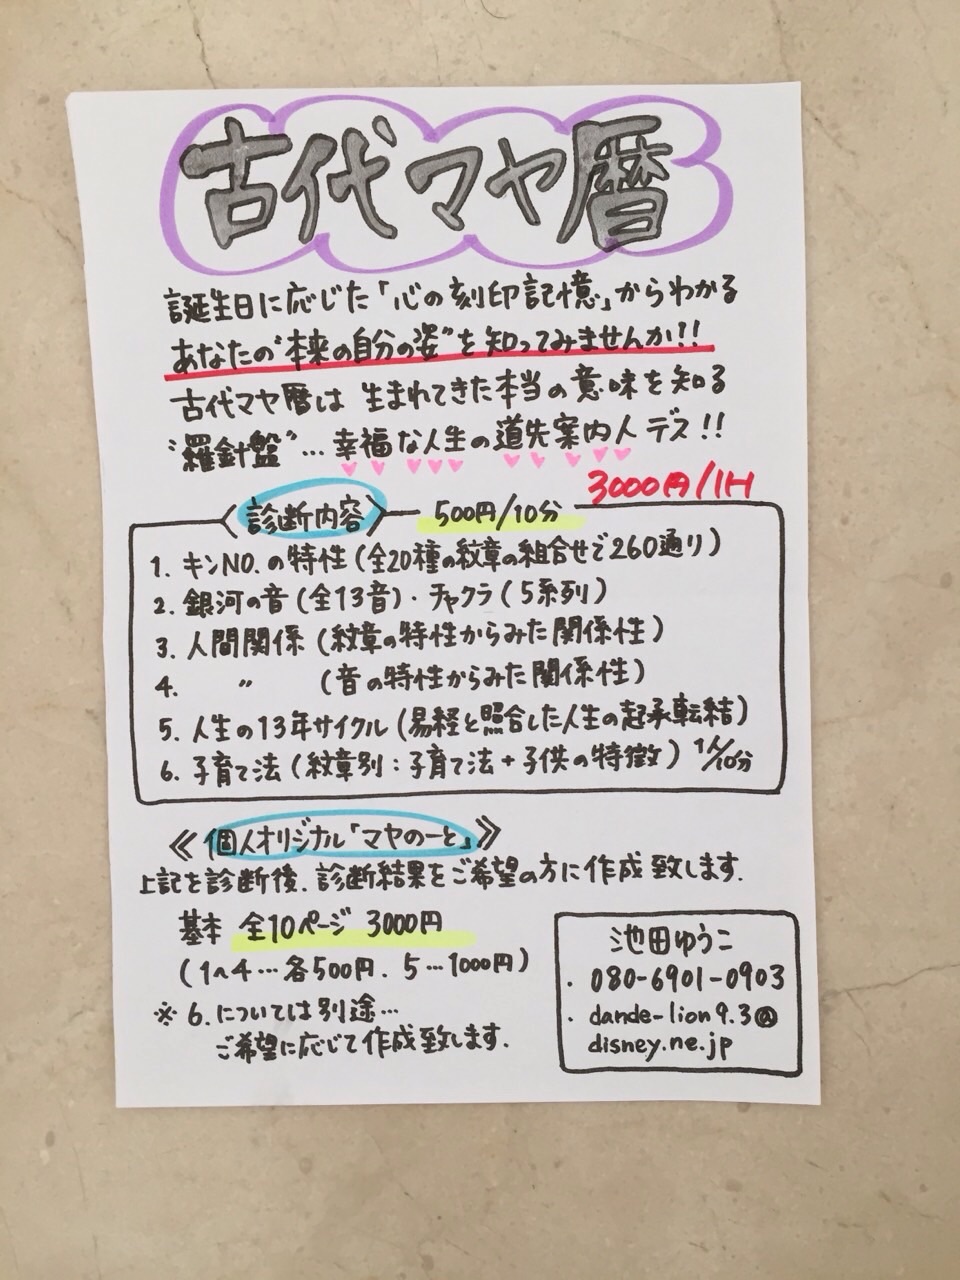 古代マヤ暦
誕生日に応じた「心の刻印記憶」からわかる
あなたの"本来の自分の姿"を知ってみませんか!!
古代マヤ暦は 生まれてきた本当の意味を知る
"羅針盤"…幸福な人生の道先案内人デス!!
3000円/1H
診断内容 500円/10分
1. キンNO.の特性(全20種の紋章の組合せで260通り)
2. 銀河の音(全13音)・チャクラ(5系列)
3. 人間関係(紋章の特性からみた関係性)
4. 〃 (音の特性からみた関係性)
5. 人生の13年サイクル(易経と照合した人生の起承転結)
6. 子育て法(紋章別:子育て法+子供の特徴) 1人/10分
≪個人オリジナル「マヤのーと」≫
上記を診断後、診断結果をご希望の方に作成致します.
基本 全10ページ 3000円
(1~4…各500円. 5…1000円)
※6.については別途…
ご希望に応じて作成致します.
池田ゆうこ
・080-6901-0903
・dande-lion9.3@
disney.ne.jp